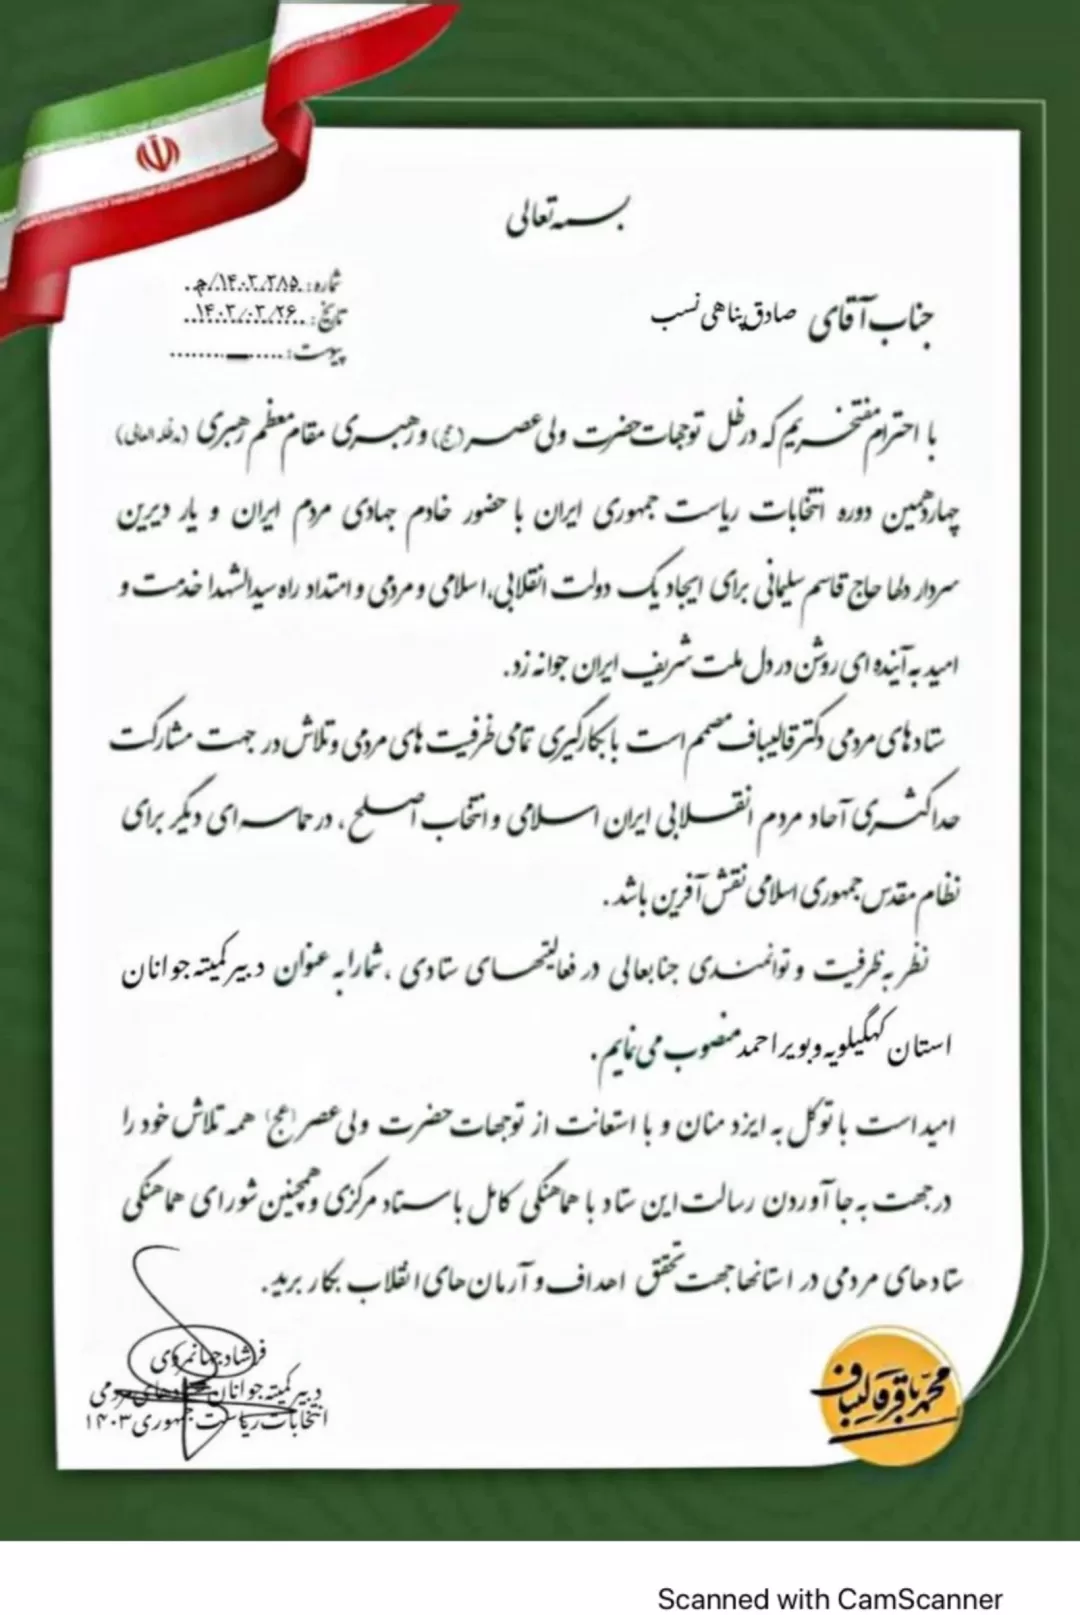 بسمه تعالی
شماره: ۱۴۰۳.۲۸۵/ج
تاریخ: ۱۴۰۳/۰۳/۲۶
پیوست: ــ
جناب آقای صادق پناهی نسب
با احترام مفتخریم که در ظل توجهات حضرت ولی عصر (عج) و رهبری مقام معظم رهبری (مدظله العالی)
چهاردهمین دوره انتخابات ریاست جمهوری ایران با حضور خادم جهادی مردم ایران و یار دیرین
سردار دلها حاج قاسم سلیمانی برای ایجاد یک دولت انقلابی، اسلامی و مردمی و امتداد راه سیدالشهدا خدمت و
امید به آینده ای روشن در دل ملت شریف ایران جوانه زد.
ستادهای مردمی دکتر قالیباف مصمم است با بکارگیری تمامی ظرفیت های مردمی و تلاش در جهت مشارکت
حداکثری آحاد مردم انقلابی ایران اسلامی و انتخاب اصلح، در حماسه ای دیگر برای
نظام مقدس جمهوری اسلامی نقش آفرین باشد.
نظر به ظرفیت و توانمندی جنابعالی در فعالیتهای ستادی، شما را به عنوان دبیر کمیته جوانان
استان کهگیلویه و بویراحمد منصوب می نمایم.
امید است با توکل به ایزد منان و با استعانت از توجهات حضرت ولی عصر (عج) همه تلاش خود را
در جهت به جا آوردن رسالت این ستاد با هماهنگی کامل با ستاد مرکزی و همچنین شورای هماهنگی
ستادهای مردمی در استانها جهت تحقق اهداف و آرمان های انقلاب بکار برید.
فرشاد جهانمردی
دبیر کمیته جوانان ستادهای مردمی
انتخابات ریاست جمهوری ۱۴۰۳
محمدباقر قالیباف
Scanned with CamScanner